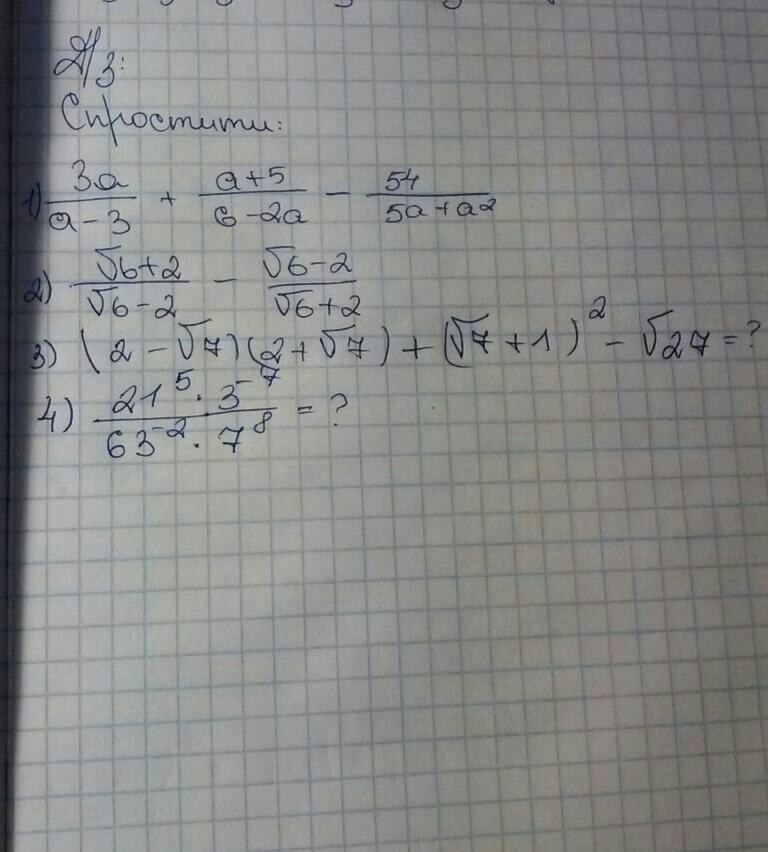 Д/З:
Спростити:
1) 3a/(a-3) + (a+5)/(6-2a) - 54/(5a+a²)
2) (√6+2)/(√6-2) - (√6-2)/(√6+2)
3) (2-√7)(2+√7)+(√7+1)² - √27=?
4) (21⁵·3⁻⁷)/(63⁻²·7⁸) = ?